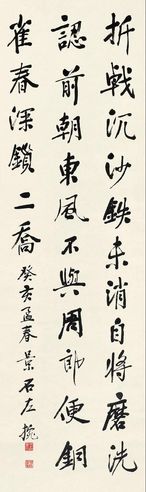 折戟沉沙鉄未消自將磨洗
認前朝東風不與周郎便銅
雀春深鎖二喬 癸亥孟春 景石左腕